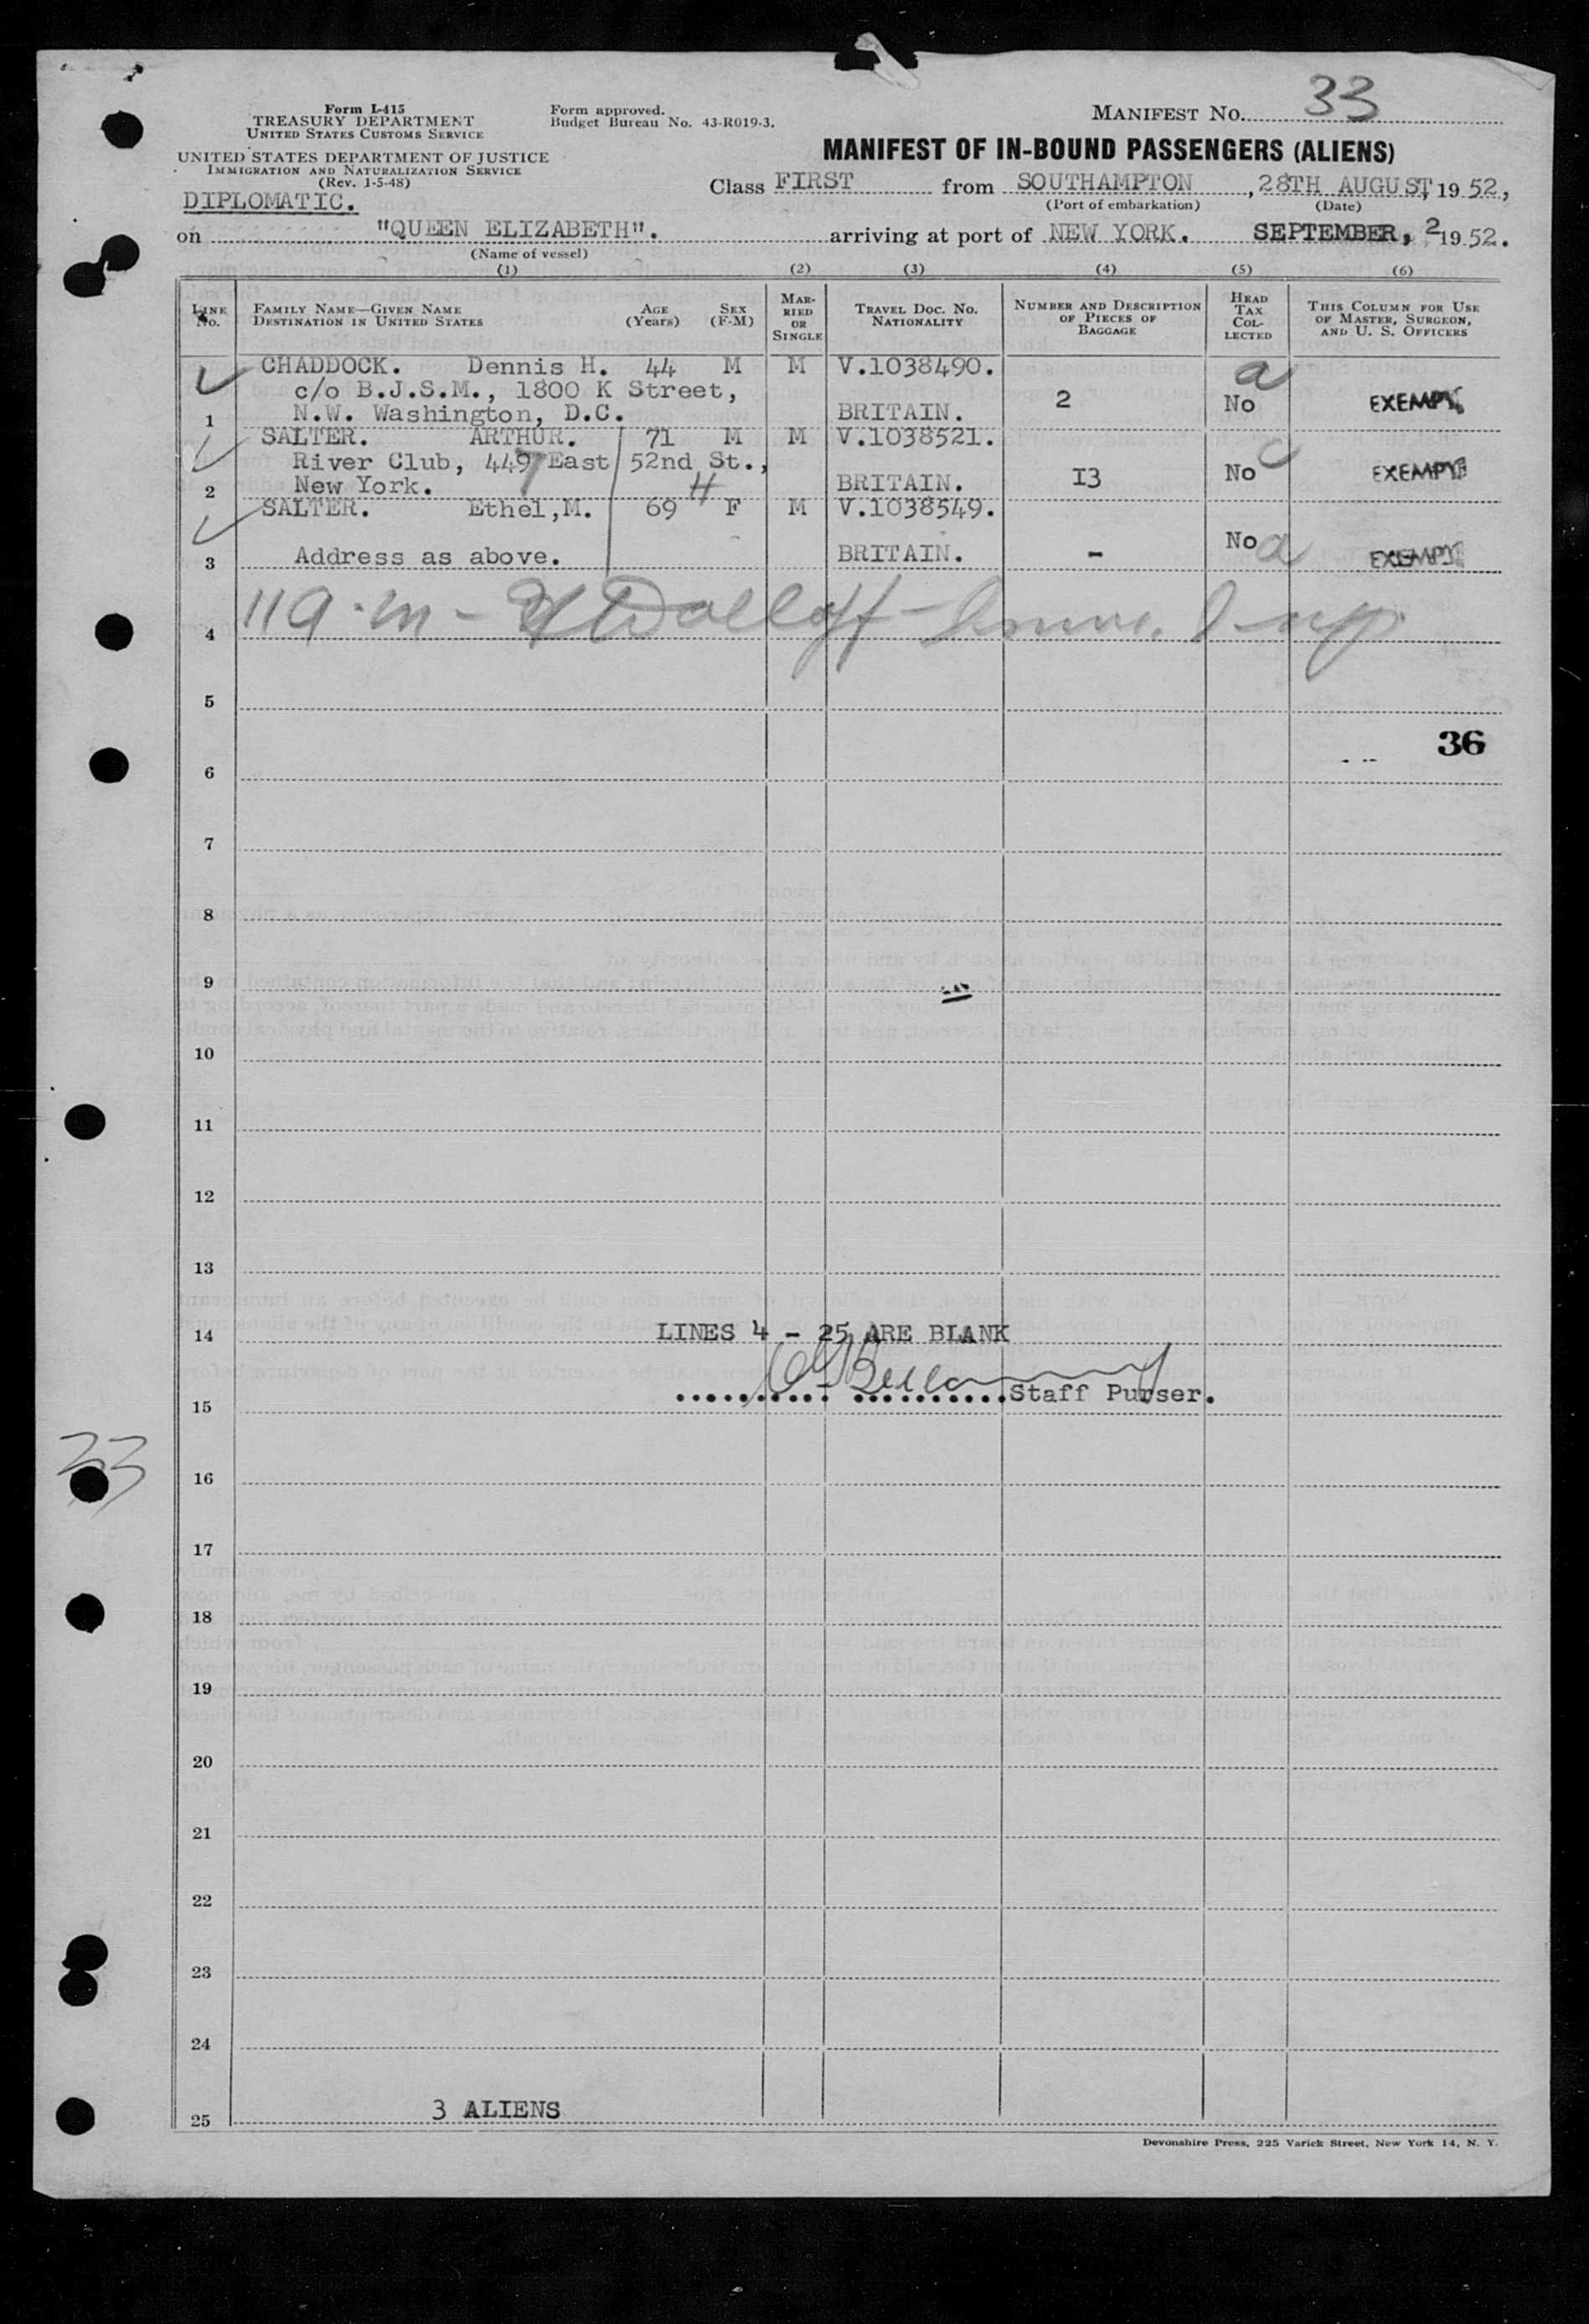 Form I-415
TREASURY DEPARTMENT
UNITED STATES CUSTOMS SERVICE
UNITED STATES DEPARTMENT OF JUSTICE
IMMIGRATION AND NATURALIZATION SERVICE
(Rev. 1-5-48)
Form approved.
Budget Bureau No. 43-R019-3.
MANIFEST NO. 33
MANIFEST OF IN-BOUND PASSENGERS (ALIENS)
Class FIRST from SOUTHAMPTON, 28TH AUGUST, 1952,
(Port of embarkation) (Date)
DIPLOMATIC.
on "QUEEN ELIZABETH". arriving at port of NEW YORK. SEPTEMBER, 2 1952.
(Name of vessel)
(1) (2) (3) (4) (5) (6)
LINE NO. FAMILY NAME—GIVEN NAME DESTINATION IN UNITED STATES AGE (Years) SEX (F-M) MARRIED OR SINGLE TRAVEL DOC. NO. NATIONALITY NUMBER AND DESCRIPTION OF PIECES OF BAGGAGE HEAD TAX COLLECTED THIS COLUMN FOR USE OF MASTER, SURGEON, AND U. S. OFFICERS
CHADDOCK. Dennis H. 44 M M V.1038490. a
c/o B.J.S.M., 1800 K Street, 2 No EXEMPT
1 N.W. Washington, D.C. BRITAIN.
SALTER. ARTHUR. 71 M M V.1038521. c
River Club, 449 East 52nd St., 13 No EXEMPT
2 New York. BRITAIN.
SALTER. Ethel,M. 69 F M V.1038549.
No a
3 Address as above. BRITAIN. - EXEMPT
4 119.m -
5
36
6
7
8
9
10
11
12
13
14 LINES 4 - 25 ARE BLANK
15 Staff Purser.
33
16
17
18
19
20
21
22
23
24
25 3 ALIENS
Devonshire Press, 225 Varick Street, New York 14, N. Y.